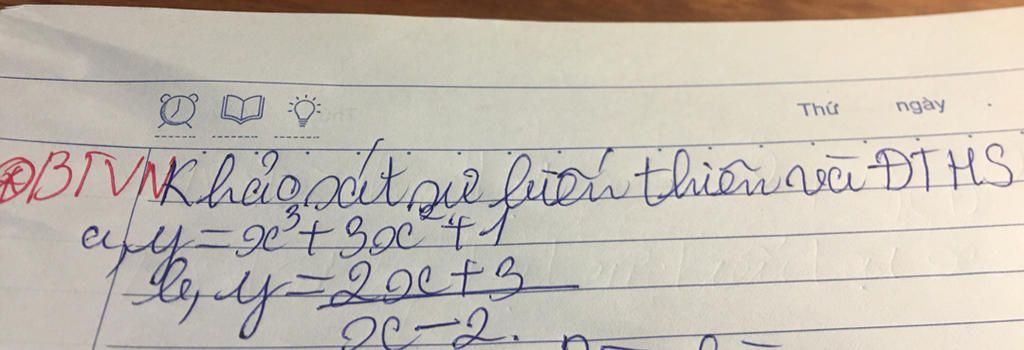 Thứ ngày .
BTVN Khảo sát sự biến thiên và ĐTHS
a, y = x³ + 3x² + 1
b, y = 2x + 3
x - 2.